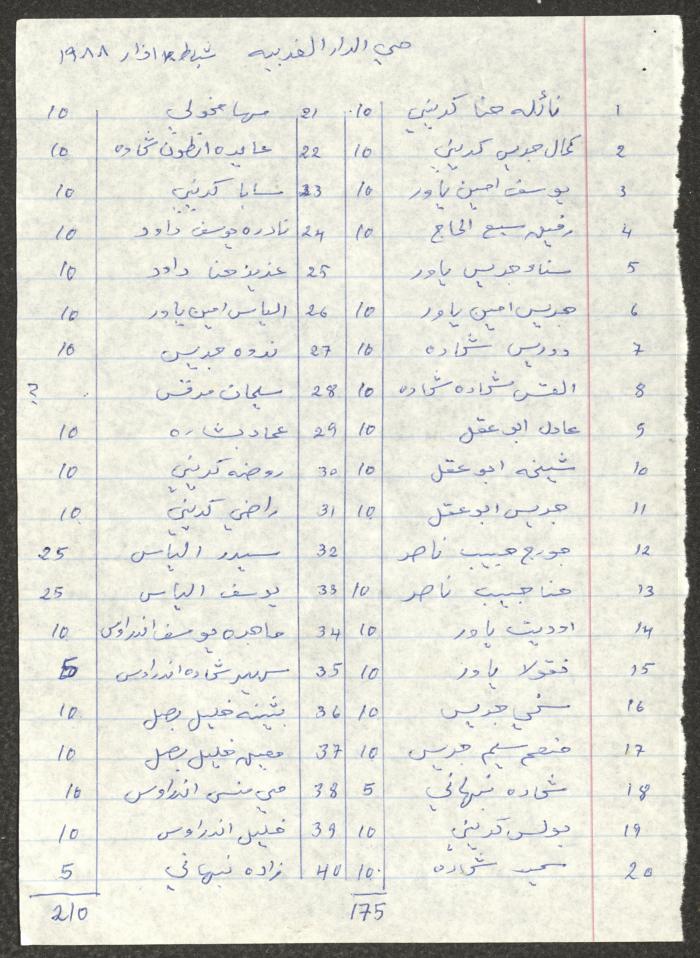 حي الدار الغربيه شباط اذار ١٩٨٨
1 نائله حنا كديني 10
2 كمال جريس كديني 10
3 يوسف امين ياور 10
4 رفيق سبع الحاج 10
5 سناء جريس ياور
6 جريس امين ياور 10
7 دوريس شحاده 10
8 القس شحاده شحاده 10
9 عادل ابو عقل 10
10 شيخه ابو عقل 10
11 جريس ابو عقل 10
12 جورج حبيب ناصر
13 حنا حبيب ناصر 10
14 اوديت ياور 10
15 نقولا ياور 10
16 سخي جريس 10
17 منعم سليم جريس 10
18 شحاده نبهاني 5
19 بولس كديني 10
20 سعيد شحاده 10
175
21 مها مخولي 10
22 عايده انطون شحاده 10
23 سابا كديني 10
24 نادره يوسف داود 10
25 عزيز حنا داود 10
26 الياس امين ياور 10
27 ندوه جريس 10
28 سليمان مرقس ?
29 عماد بشاره 10
30 روضه كديني 10
31 راضي كديني 10
32 الياس 25
33 يوسف الياس 25
34 ماهره يوسف اندراوس 10
35 سهير شحاده اندراوس 5
36 بثينه خليل بصل 10
37 معين خليل بصل 10
38 مي منسى اندراوس 10
39 خليل اندراوس 10
40 نبهاني 5
210